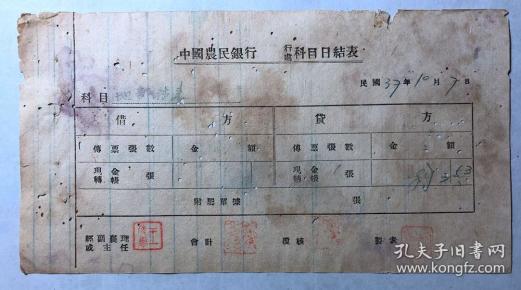 中國農民銀行 行處 科目日結表
民國 37 年 10 月 7 日
科目
借方 貸方
傳票張數 金額 傳票張數 金額
現金 轉帳 張 現金 轉帳 張
附屬單據 張
經副襄理 或主任 會計 覆核 製表
孔夫子旧书网
www.kongfz.com